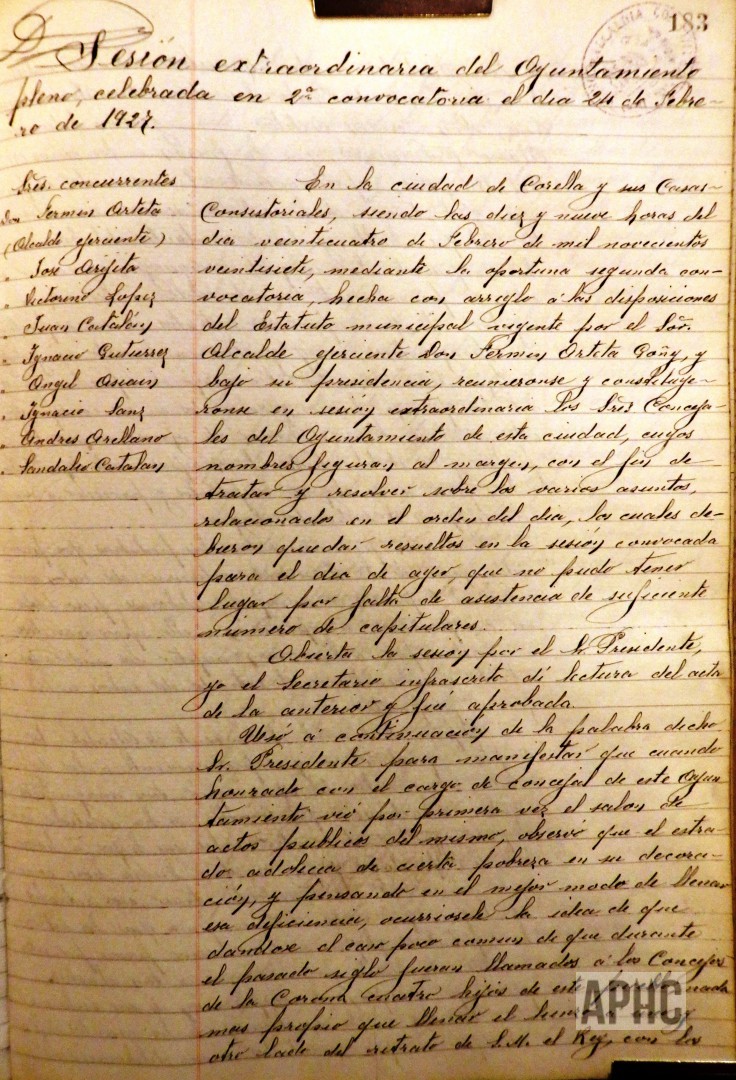 183
Sesión extraordinaria del Ayuntamiento
pleno, celebrada en 2ª convocatoria el dia 24 de Febre-
ro de 1927.
Sres. concurrentes
Don Fermin Arteta
(Alcalde ejerciente)
" José Argeta
" Victorino Lopez
" Juan Catalán
" Ygnacio Gutierrez
" Angel Asiain
" Ygnacio Sanz
" Andres Arellano
" Sandalio Catalan
En la ciudad de Corella y sus Casas-
Consistoriales, siendo las diez y nueve horas del
dia veinticuatro de Febrero de mil novecientos
veintisiete, mediante la oportuna segunda con-
vocatoria, hecha con arreglo á las disposiciones
del Estatuto municipal vigente por el Sor.
Alcalde ejerciente Don Fermin Arteta Goñy, y
bajo su presidencia, reunieronse y constituye-
ronse en sesión extraordinaria los Sres. Conceja-
les del Ayuntamiento de esta ciudad, cuyos
nombres figuran al margen, con el fin de
tratar y resolver sobre los varios asuntos,
relacionados en el orden del dia, los cuales de-
bieron quedar resueltos en la sesión convocada
para el dia de ayer, que no pudo tener
lugar por falta de asistencia de suficiente
número de capitulares.
Abierta la sesión por el Sr. Presidente,
yo el Secretario infrascrito dí lectura del acta
de la anterior y fué aprobada.
Usó á continuación de la palabra dicho
Sr. Presidente para manifestar que cuando
honrado con el cargo de concejal de este Ayun
tamiento vió por primera vez el salon de
actos publicos del mismo, observó que el estra-
do adolecia de cierta pobreza en su decora-
ción, y pensando en el mejor modo de llenar
esa deficiencia, ocurriosele la idea de que
dandose el caso poco comun de que durante
el pasado siglo fueran llamados á los Consejos
de la Corona cuatro hijos de esta nada
mas propio que llenar el
otro lado del retrato de S.M. el Rey, con los
APHC